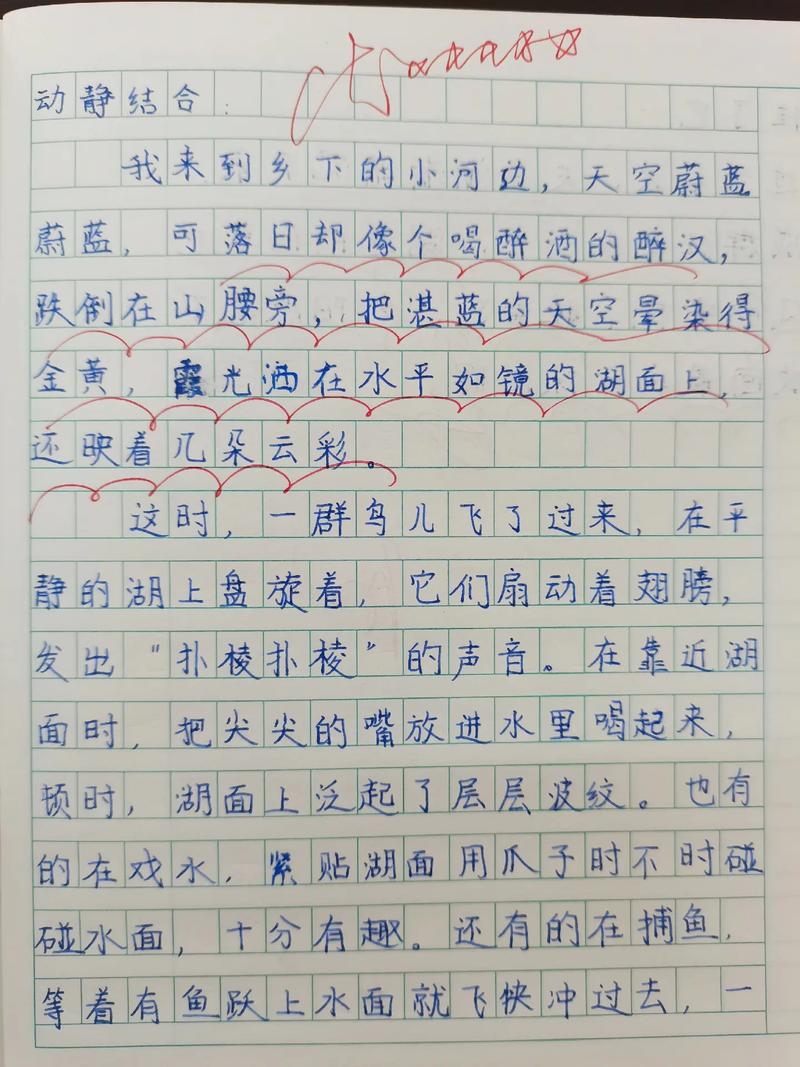 动静结合：
我来到乡下的小河边，天空蔚蓝
蔚蓝，可落日却像个喝醉酒的醉汉，
跌倒在山腰旁，把湛蓝的天空晕染得
金黄，霞光洒在水平如镜的湖面上，
还映着几朵云彩。
这时，一群鸟儿飞了过来，在平
静的湖上盘旋着，它们扇动着翅膀，
发出“扑棱扑棱”的声音。在靠近湖
面时，把尖尖的嘴放进水里喝起来，
顿时，湖面上泛起了层层波纹。也有
的在戏水，紧贴湖面用爪子时不时碰
碰水面，十分有趣。还有的在捕鱼，
等着有鱼跃上水面就飞快冲过去，一